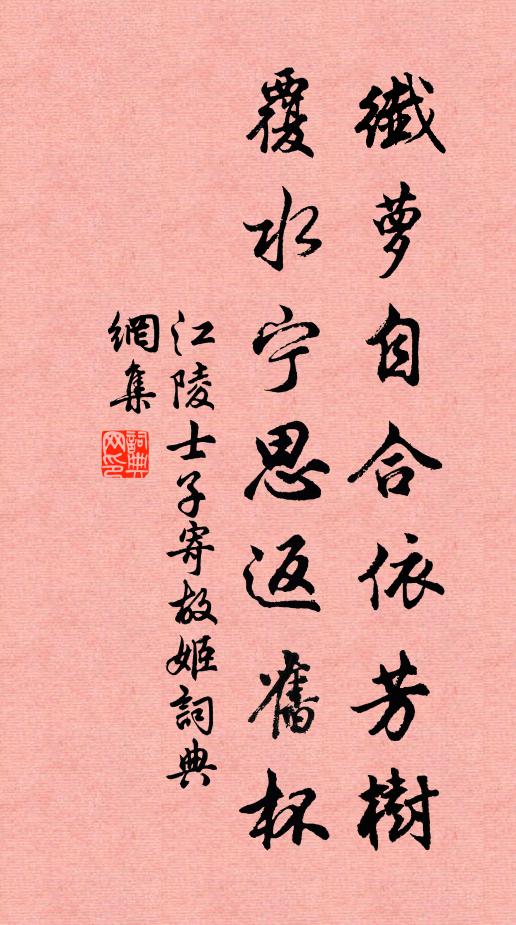 纖萝自合依芳樹
覆水宁思返舊杯
江陵士子寄故姬詞典
網集
詞典
网印